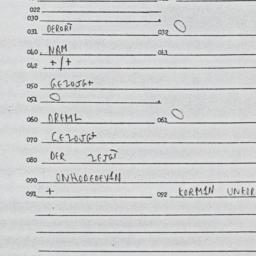 022
030
031 DERORT 032 O
040. NAM 041
042 +/+
050 GEZOJGT
051 O
060 DREML 061 O
070 CEZOJGT
080 DER ZEJGT
090 ONHODEDEV1N
091 + 092 KORM1N UNFOR